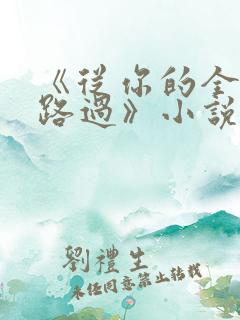 《從你的全
路過》小說
劉禮生
未經同意禁止轉載